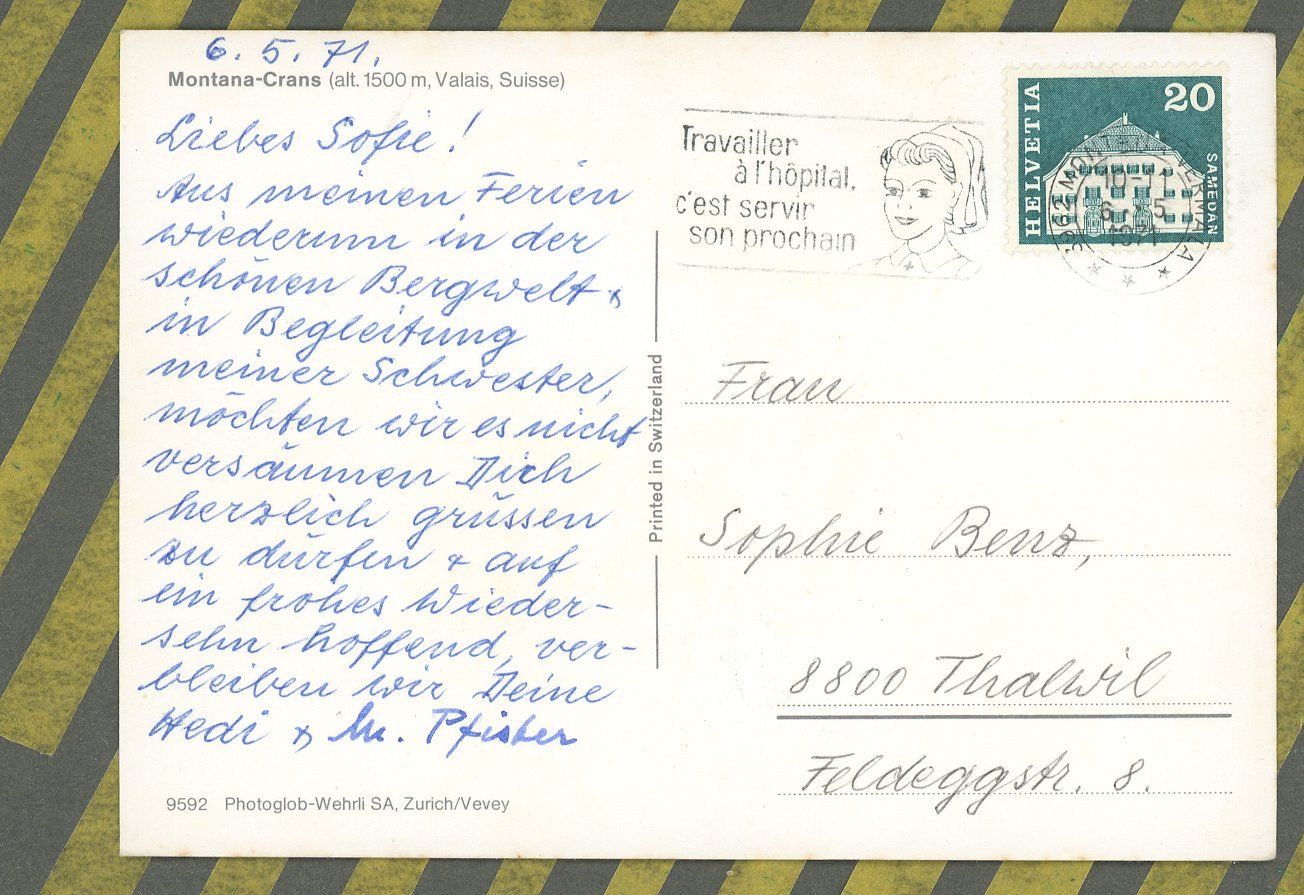 6. 5. 71.
Montana-Crans (alt. 1500 m, Valais, Suisse)
Liebes Sofie!
Aus meinen Ferien
wiederum in der
schönen Bergwelt &
in Begleitung
meiner Schwester,
möchten wir es nicht
versäumen Dich
herzlich grüssen
zu dürfen & auf
ein frohes Wieder-
sehn hoffend, ver-
bleiben wir Deine
Hedi & M. Pfister
9592 Photoglob-Wehrli SA, Zurich/Vevey
Printed in Switzerland
Travailler
à l'hôpital,
c'est servir
son prochain
HELVETIA
20
SAMEDAN
3962 MONTANA-VERMALA
10-11
6 - 5
1971
Frau
Sophie Benz,
8800 Thalwil
Feldeggstr. 8.